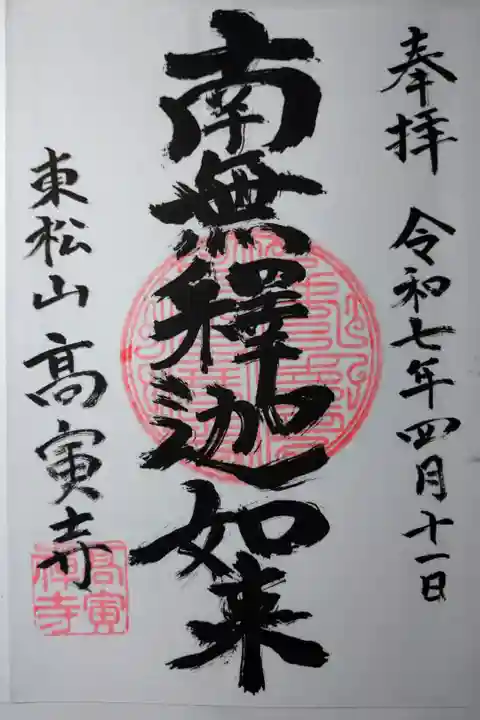 奉拝 令和七年四月十一日
南無釋迦如来
東松山 高寅寺
高寅禅寺